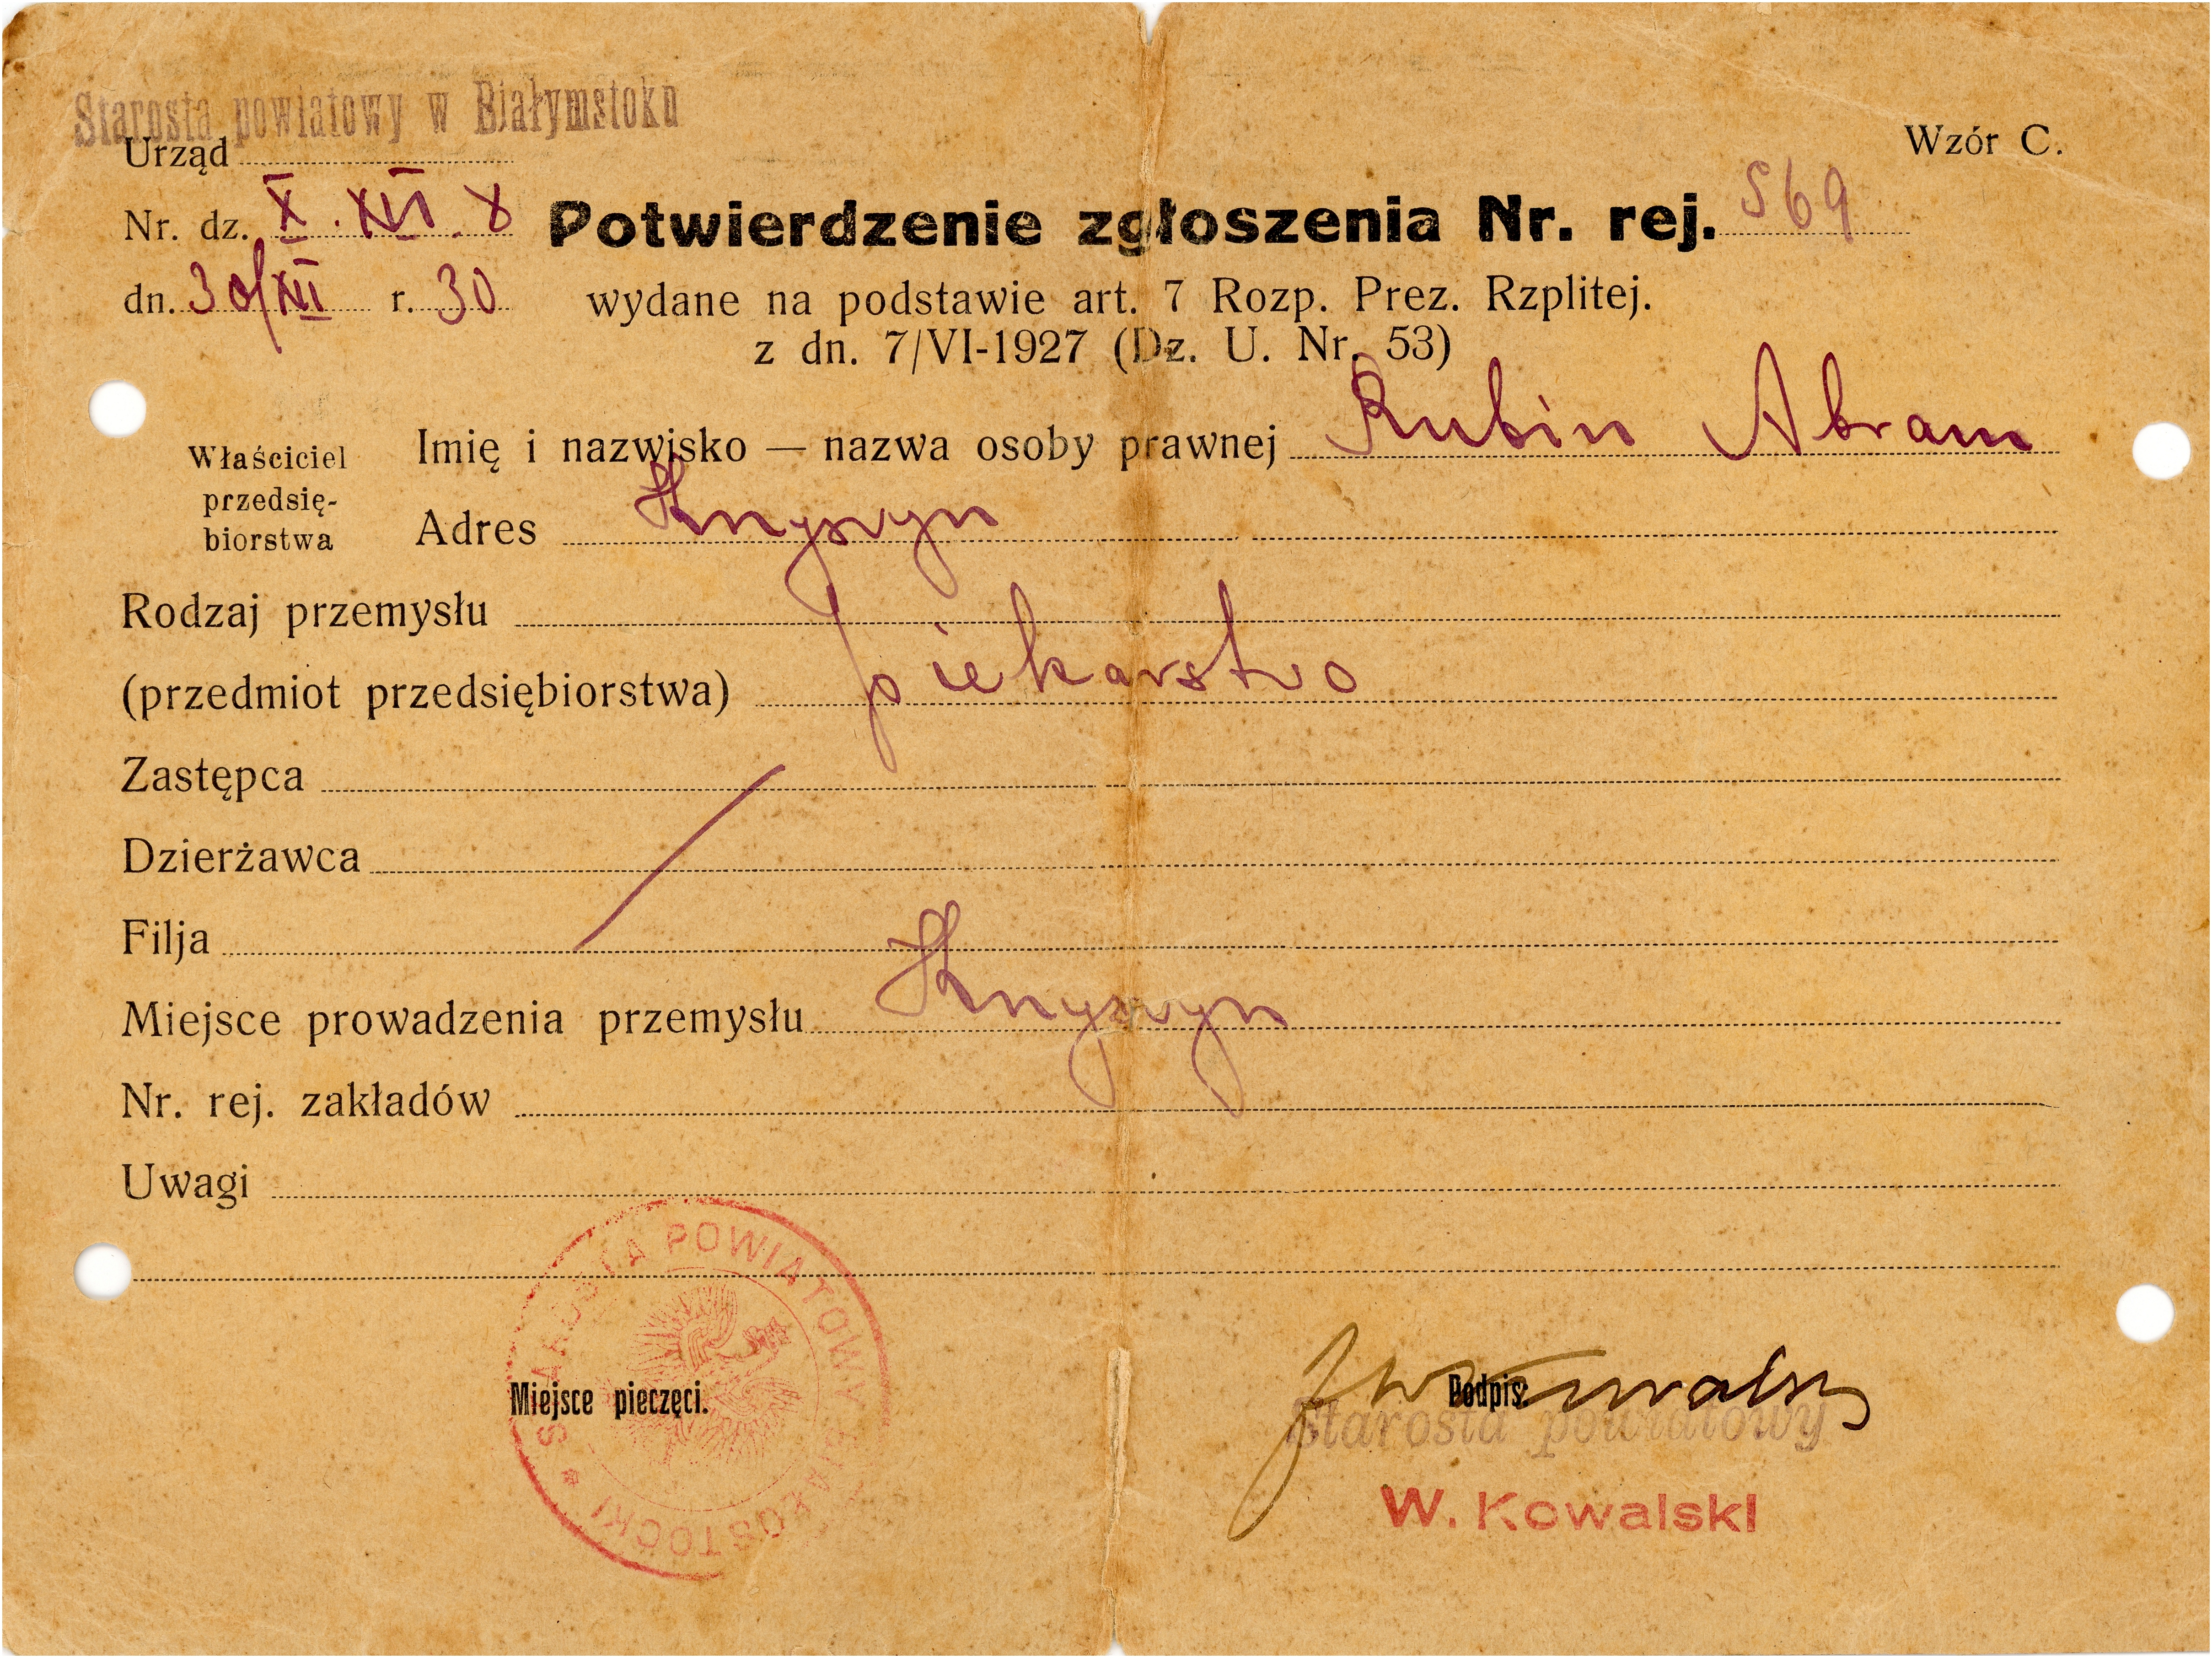 Starosta powiatowy w Białymstoku
Urząd
Wzór C.
Nr. dz. X. XII. 8
Potwierdzenie zgłoszenia Nr. rej. 569
dn. 30/XII r. 30
wydane na podstawie art. 7 Rozp. Prez. Rzplitej.
z dn. 7/VI-1927 (Dz. U. Nr. 53)
Właściciel
przedsię-
biorstwa
Imię i nazwisko — nazwa osoby prawnej Rubin Abram
Adres Knyszyn
Rodzaj przemysłu
(przedmiot przedsiębiorstwa) piekarstwo
Zastępca
Dzierżawca
Filja
Miejsce prowadzenia przemysłu Knyszyn
Nr. rej. zakładów
Uwagi
STAROSTA POWIATOWY BIAŁOSTOCKI
Miejsce pieczęci.
Podpis:
Starosta powiatowy
W. Kowalski